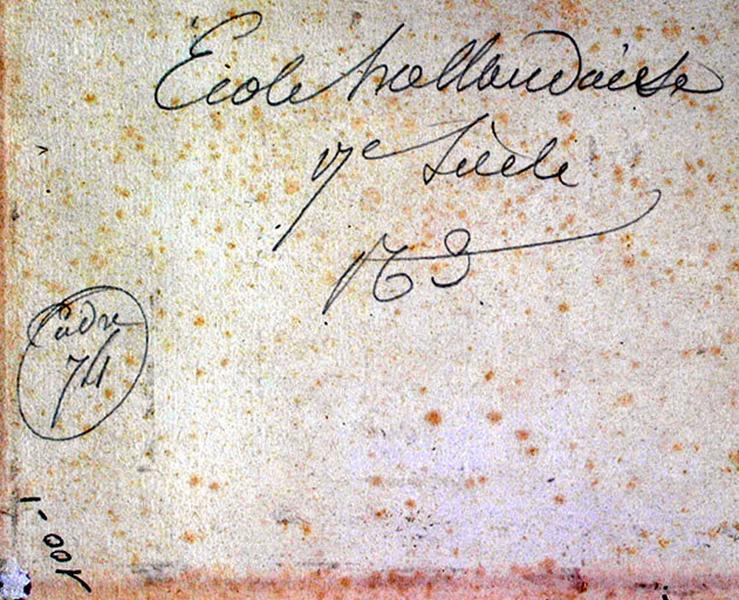 Ecole hollandaise
17e Siècle
163
Cadre
74